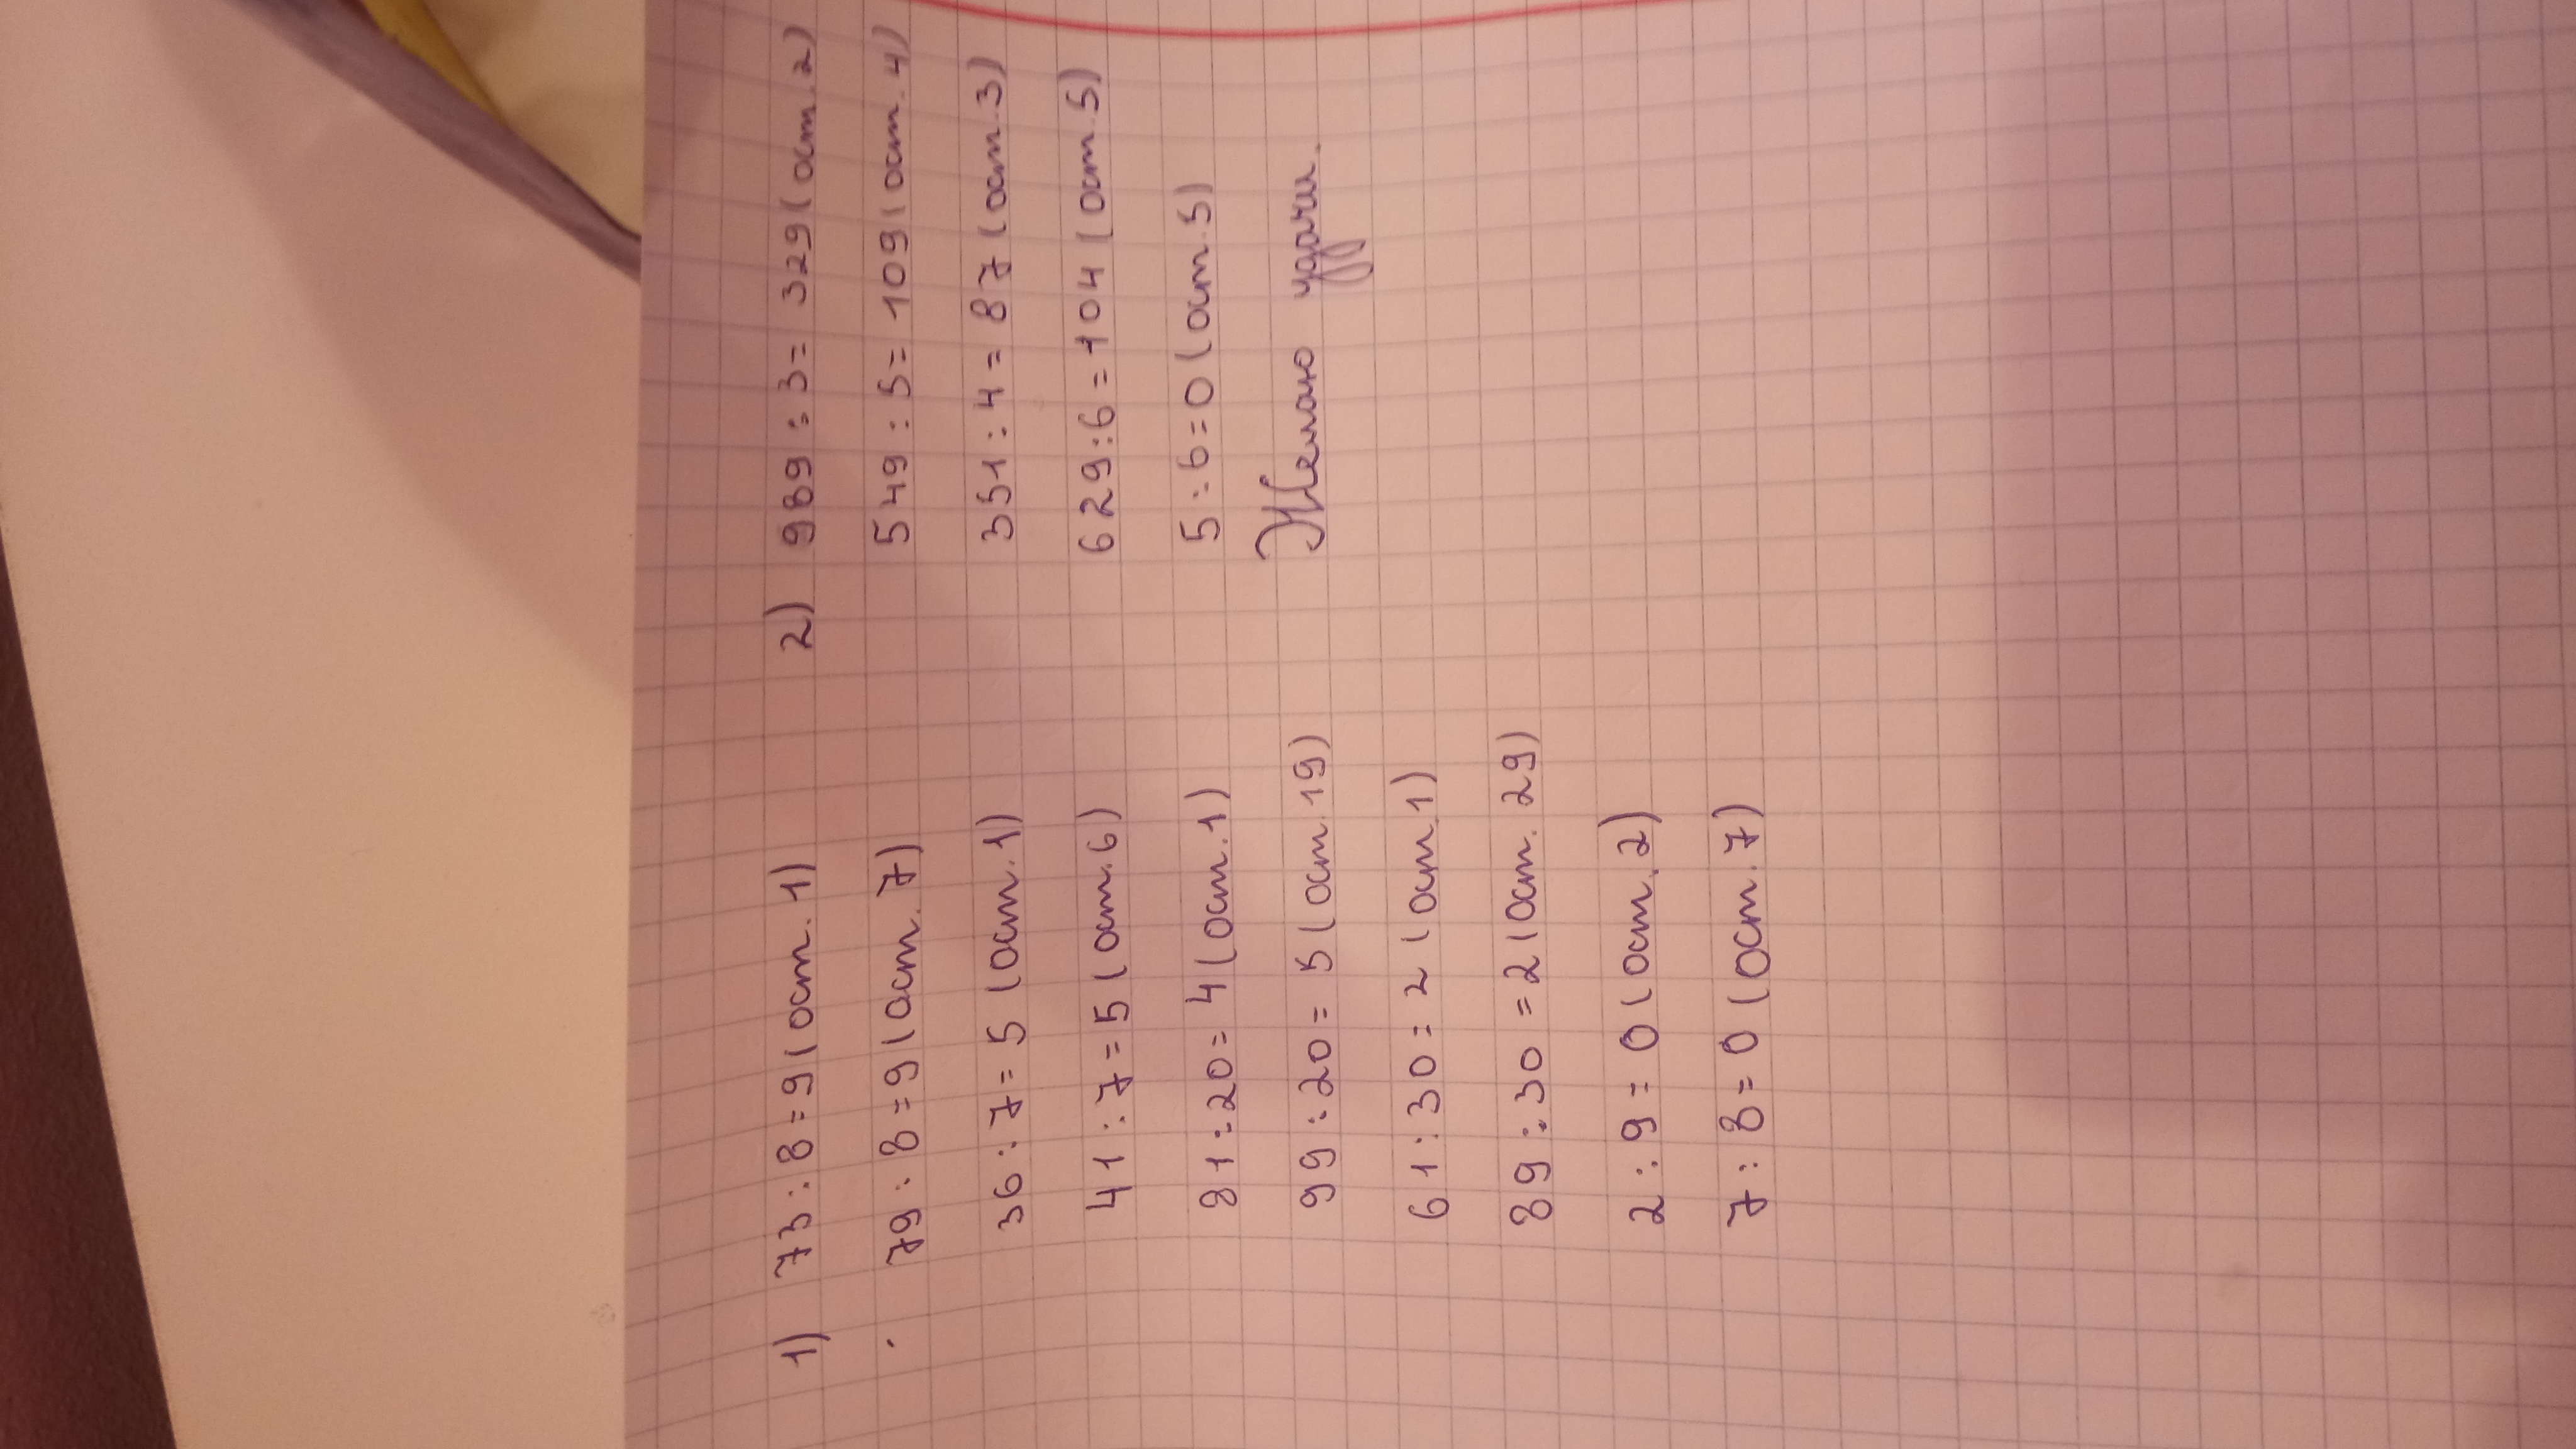 1) 73 : 8 = 9 (ост. 1)
79 : 8 = 9 (ост. 7)
36 : 7 = 5 (ост. 1)
41 : 7 = 5 (ост. 6)
81 : 20 = 4 (ост. 1)
99 : 20 = 5 (ост. 19)
61 : 30 = 2 (ост. 1)
89 : 30 = 2 (ост. 29)
2 : 9 = 0 (ост. 2)
7 : 8 = 0 (ост. 7)
2) 989 : 3 = 329 (ост. 2)
549 : 5 = 109 (ост. 4)
351 : 4 = 87 (ост. 3)
629 : 6 = 104 (ост. 5)
5 : 6 = 0 (ост. 5)
Желаю удачи.